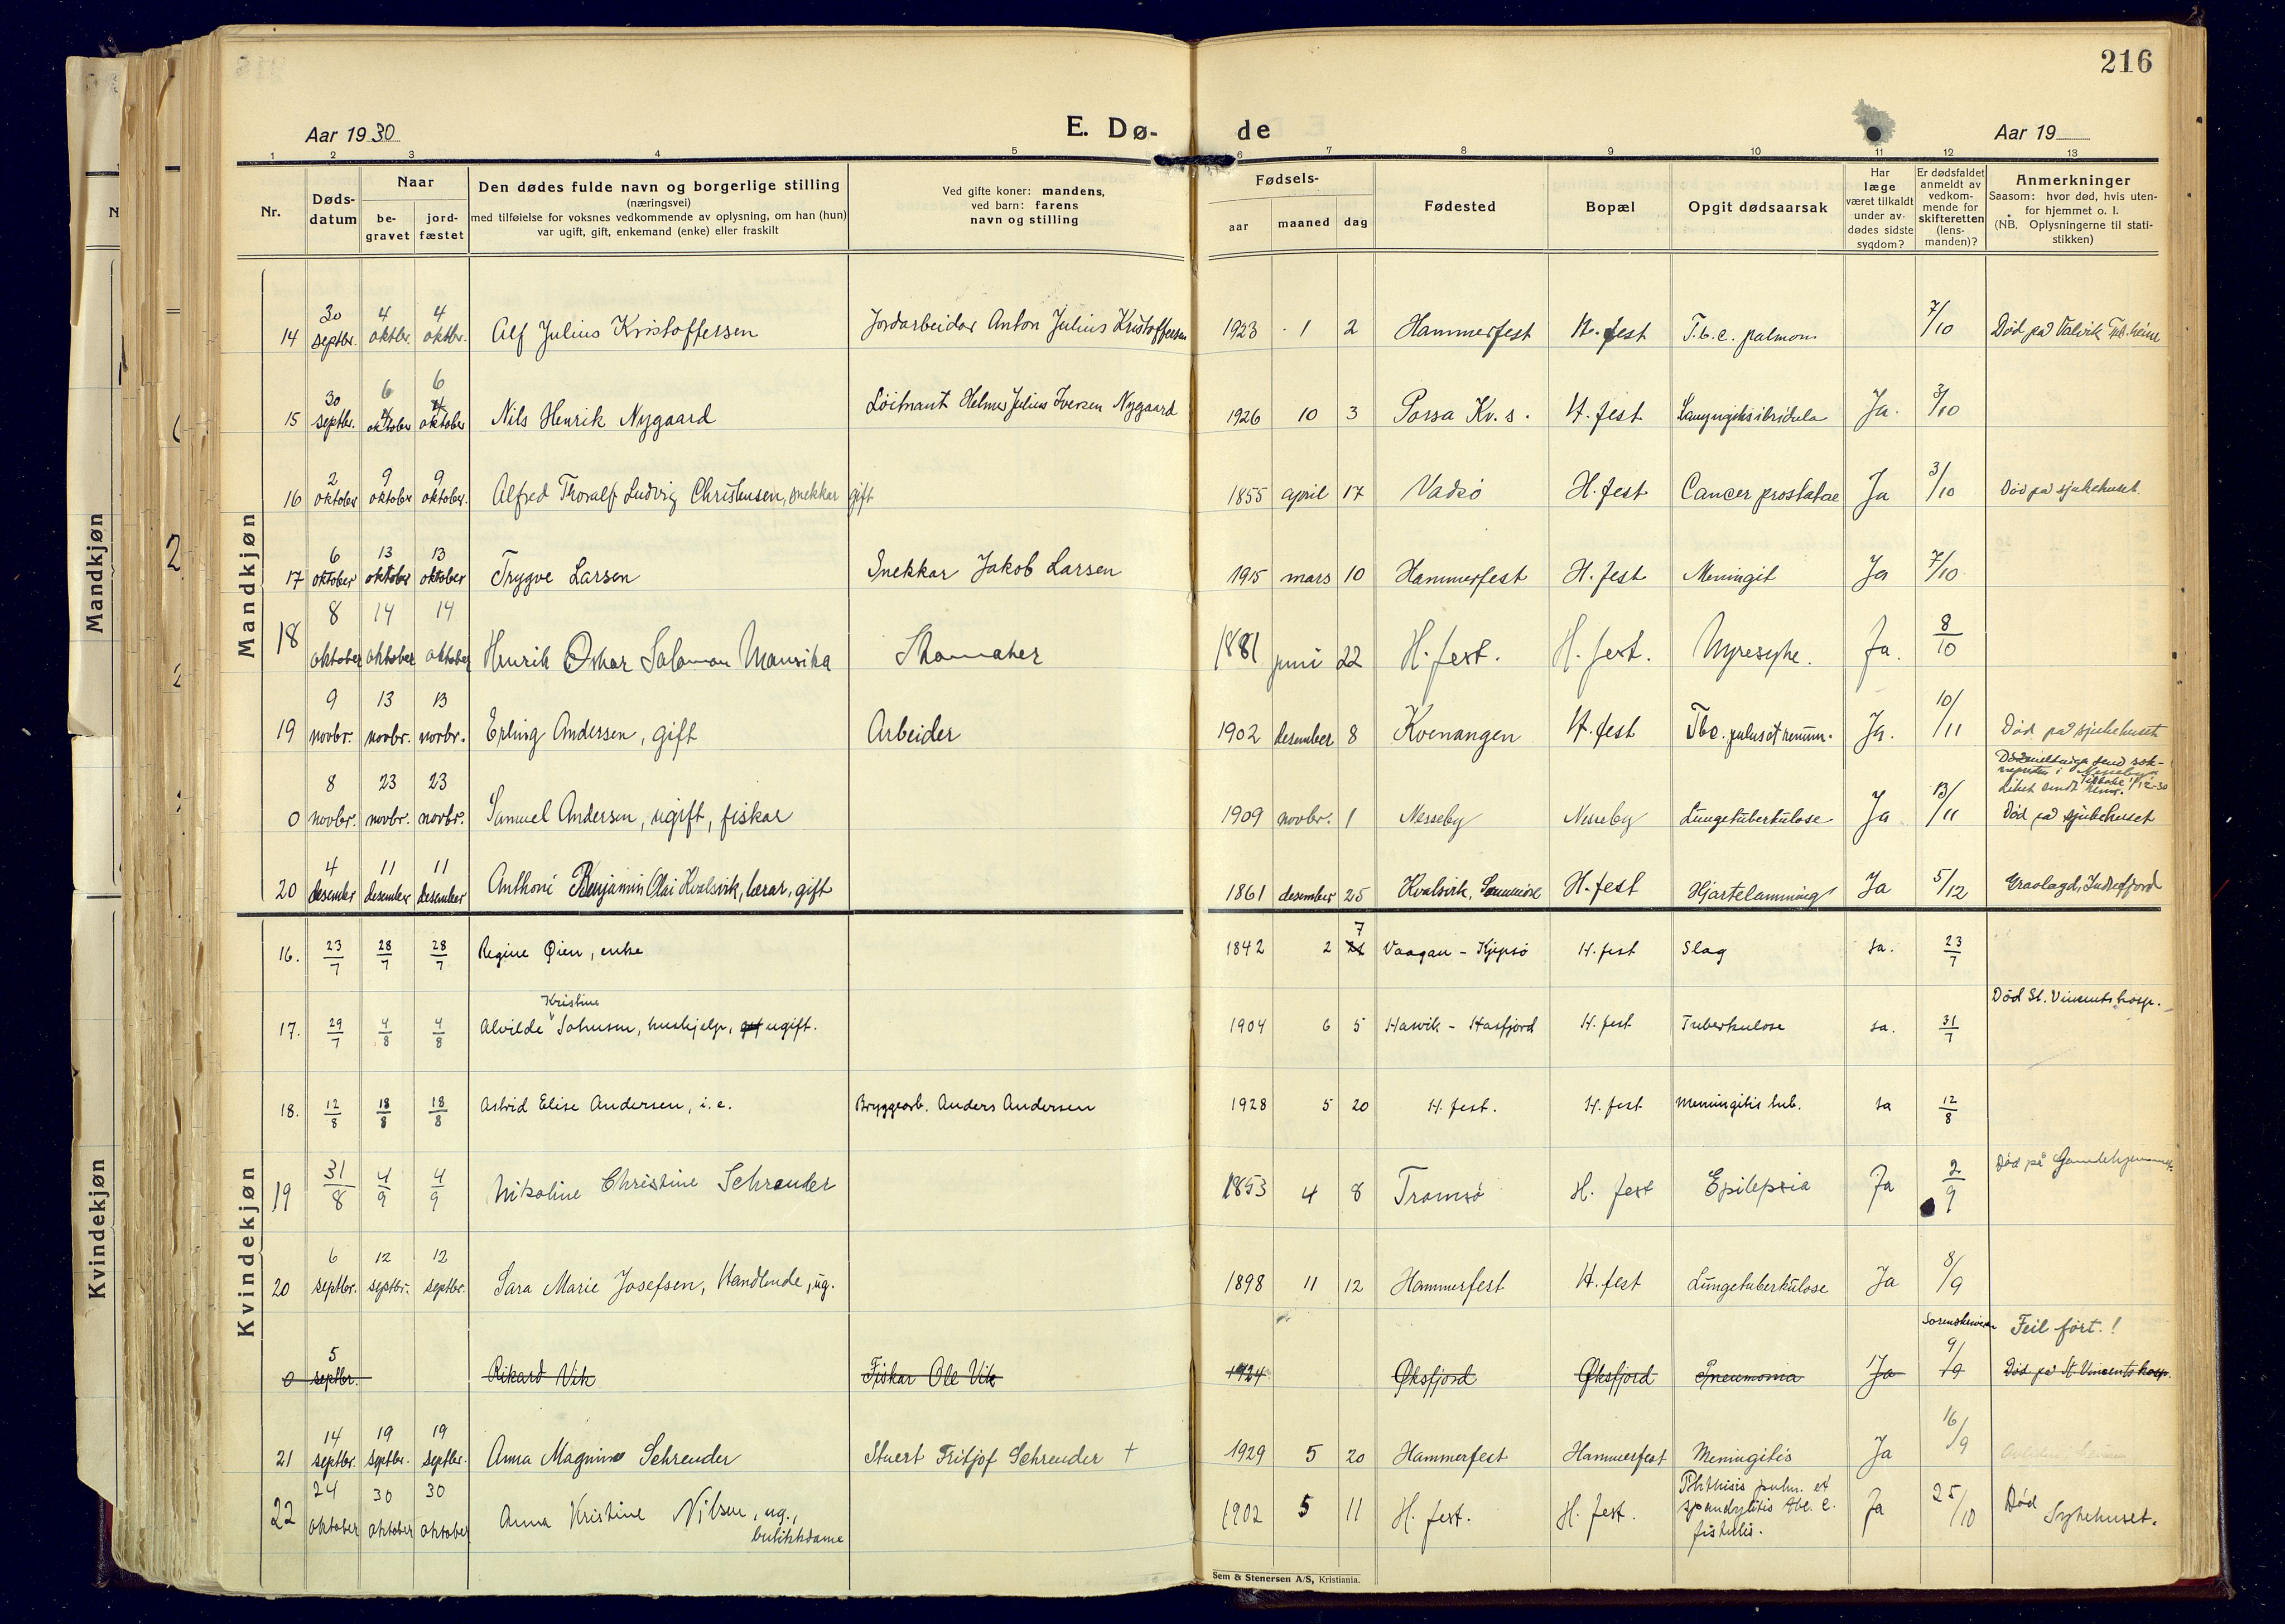 216
Aar 1930 E. Dø- de Aar 19
1 2 3 4 5 6 7 8 9 10 11 12 13
Nr.
Døds-
datum
Naar
be-
gravet
jord-
fæstet
Den dødes fulde navn og borgerlige stilling
(næringsvei)
med tilføielse for voksnes vedkommende av oplysning, om han (hun)
var ugift, gift, enkemand (enke) eller fraskilt
Ved gifte koner: mandens,
ved barn: farens
navn og stilling
Fødsels-
aar maaned dag
Fødested
Bopæl
Opgit dødsaarsak
Har
læge
været tilkaldt
under av-
dødes sidste
sygdom?
Er dødsfaldet
anmeldt av
vedkom-
mende for
skifteretten
(lens-
manden)?
Anmerkninger
Saasom: hvor død, hvis uten-
for hjemmet o. l.
(NB. Oplysningerne til stati-
stikken)
Mandkjøn
14 30 septbr. 4 oktbr. 4 oktbr. Alf Julius Kristoffersen Jordarbeidar Anton Julius Kristoffersen 1923 1 2 Hammerfest H.fest T.b.c. pulmon. 7/10 Død på Valvik Tub.heim
15 30 septbr. 6 oktober 6 oktober Nils Henrik Nygaard Løitnant Helmer Julius Iversen Nygaard 1926 10 3 Porsa Kv. s. H.fest Ja. 3/10
16 2 oktober 9 oktober 9 oktober. Alfred Thoralf Ludvig Christensen, snekkar gift 1855 april 17 Vadsø H.fest Cancer prostatae Ja 3/10 Død på sjukehuset.
17 6 oktober 13 oktober 13 oktober Trygve Larsen Snekkar Jakob Larsen 1915 mars 10 Hammerfest H.fest Meningit Ja 7/10
18 8 oktober 14 oktober 14 oktober Henrik Oskar Salomon Mausika Skomaker 1881 juni 22 H.fest. H.fest. Nyresyke. Ja. 8/10
19 9 novbr. 13 novbr. 13 novbr. Erling Andersen, gift Arbeider 1902 desember 8 Kvenangen H.fest Tbc. Ja. 10/11 Død på sjukehuset
0 8 novbr. 23 novbr. 23 novbr. Samuel Andersen, ugift, fiskar 1909 novbr. 1 Nesseby Nesseby Lungetuberkulose Ja 13/11 Død på sjukehuset
20 4 desember 11 desember 11 desember Anthoni Benjamin Olai Kvalsvik, lærar, gift 1861 desember 25 Kvalsvik, Sunnmøre H.fest Hjartelamming Ja 5/12 Gravlagd, Indrefjord
Kvindekjøn
16. 23/7 28/7 28/7 Regine Øien, enke 1842 2 7 Vaagan - Kjepsø H.fest Slag Ja. 23/7
17. 29/7 4/8 4/8 Alvilde Kristine Johnsen, hushjelp, ugift. 1904 6 5 Hasvik - Hasfjord H.fest Tuberkulose Ja. 31/7 Død St. Vincents hosp.
18. 12/8 18/8 18/8 Astrid Elise Andersen, i.e. Bryggearb. Anders Andersen 1928 5 20 H.fest. H.fest Meningitis tub. Ja 12/8
19 31/8 4/9 4/9 Nikoline Christine Schreuder 1853 4 8 Tromsø H. fest Epilepsia Ja 2/9 Død på Gamlehjemmet
20 6 septbr. 12 septbr. 12 septbr. Sara Marie Josefsen, Handlende, ug. 1898 11 12 Hammerfest H.fest Lungetuberkulose Ja 8/9
0 5 septbr. Rikard Vik Fiskar Ole Vik 1924 Øksfjord Øksfjord Pneumonia Ja Sorenskriveren 9/9 Feil ført.! Død på St. Vincents hosp.
21 14 septbr. 19 septbr. 19 septbr. Anna Magnine Schreuder Stuert Fritjof Schreuder + 1929 5 20 Hammerfest Hammerfest Meningitis Ja 16/9
22 24 oktober 30 oktober 30 oktober Anna Kristine Nilsen, ug., butikkdame 1902 5 11 H.fest. H.fest. Phthisis pulm. et spondylitis tbc. c. fistulis. Ja 25/10 Død Sykehuset.
Sem & Stenersen A/S, Kristiania.
Mandkjøn
Kvindekjøn